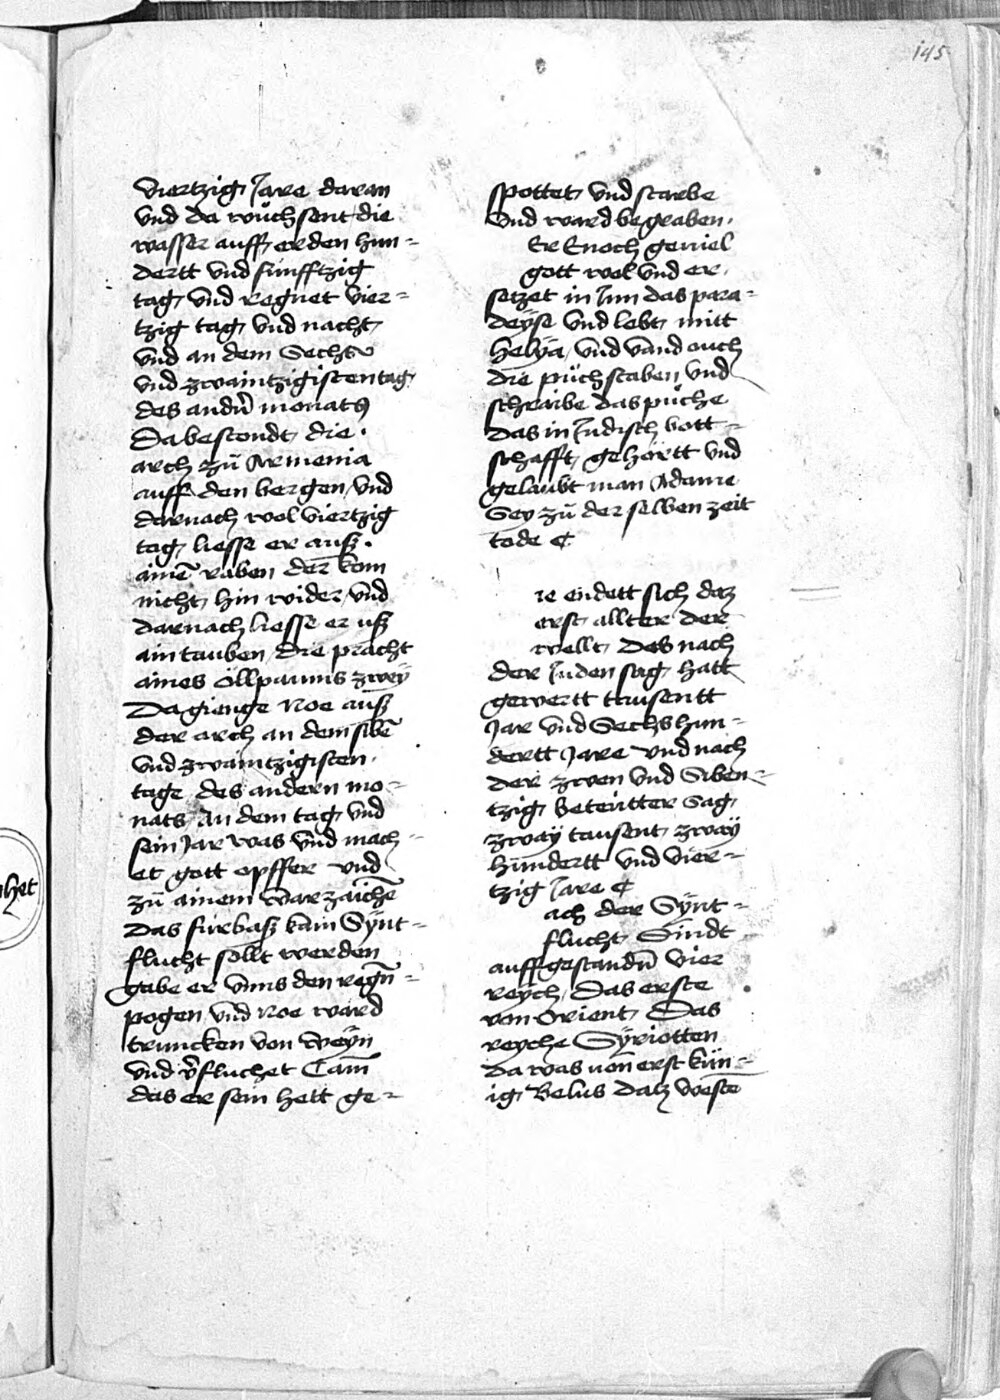 145
viertzig Jare daran
vnd da wůchsent die
wasser auff erden hun=
dertt vnd fúnfftzig
tag vnd regnet vier=
tzig tag vnd nacht
vnd an dem Sechts
vnd zwaintzigisten tag
des andrñ monats
Da bestondt die
arch zů Armenia
auff den bergen vnd
darnach wol viertzig
tag liesse er auß
ainē raben der kom
nicht hin wider vnd
darnach liesse er uß
ain tauben die pracht
aines öllpaums zwey
Da gienge Noe auß
der arch an dem sibē
vnd zwaintzigisten
tage des andern mo=
nats An dem tag vnd
sein Jar was vnd mach=
et gott opffer vnd
zů ainem warzaichē
das fúrbaß kain Sÿnt=
flucht sollt werden
gabe er vnns den regñ=
pogen vnd Noe ward
truncken von weÿn
vnd v̄fluchet Cam
das er sein hett ge=
spottet vnd starbe
vnd ward begraben
Er Enoch geuiel
gott wol vnd er
setzet in Jnn das para=
deÿse vnd lebt mitt
helÿa vnd vand ouch
die půchstaben vnd
schraibe das půche
das in Judisch bott=
schafft gehörtt vnd
gelaubt man Adame
Seÿ zů der selben zeit
tode
ie endett sich daz
erst allter der
wellt des nach
der Juden sag hatt
gewertt tausentt
Jar vnd Sechshun=
dertt Jare vnd nach
der zwen vnd Siben=
tzig beteútter sag
zwaÿ tausent zwaÿ
hundertt vnd vier=
tzig Jare
ach der Sÿnt=
flucht Sindt
auffgestandñ vier
reÿch Das erste
von Orient Das
reyche Sÿriotten
da was uon erst kún=
ig Belus dalz weste
het